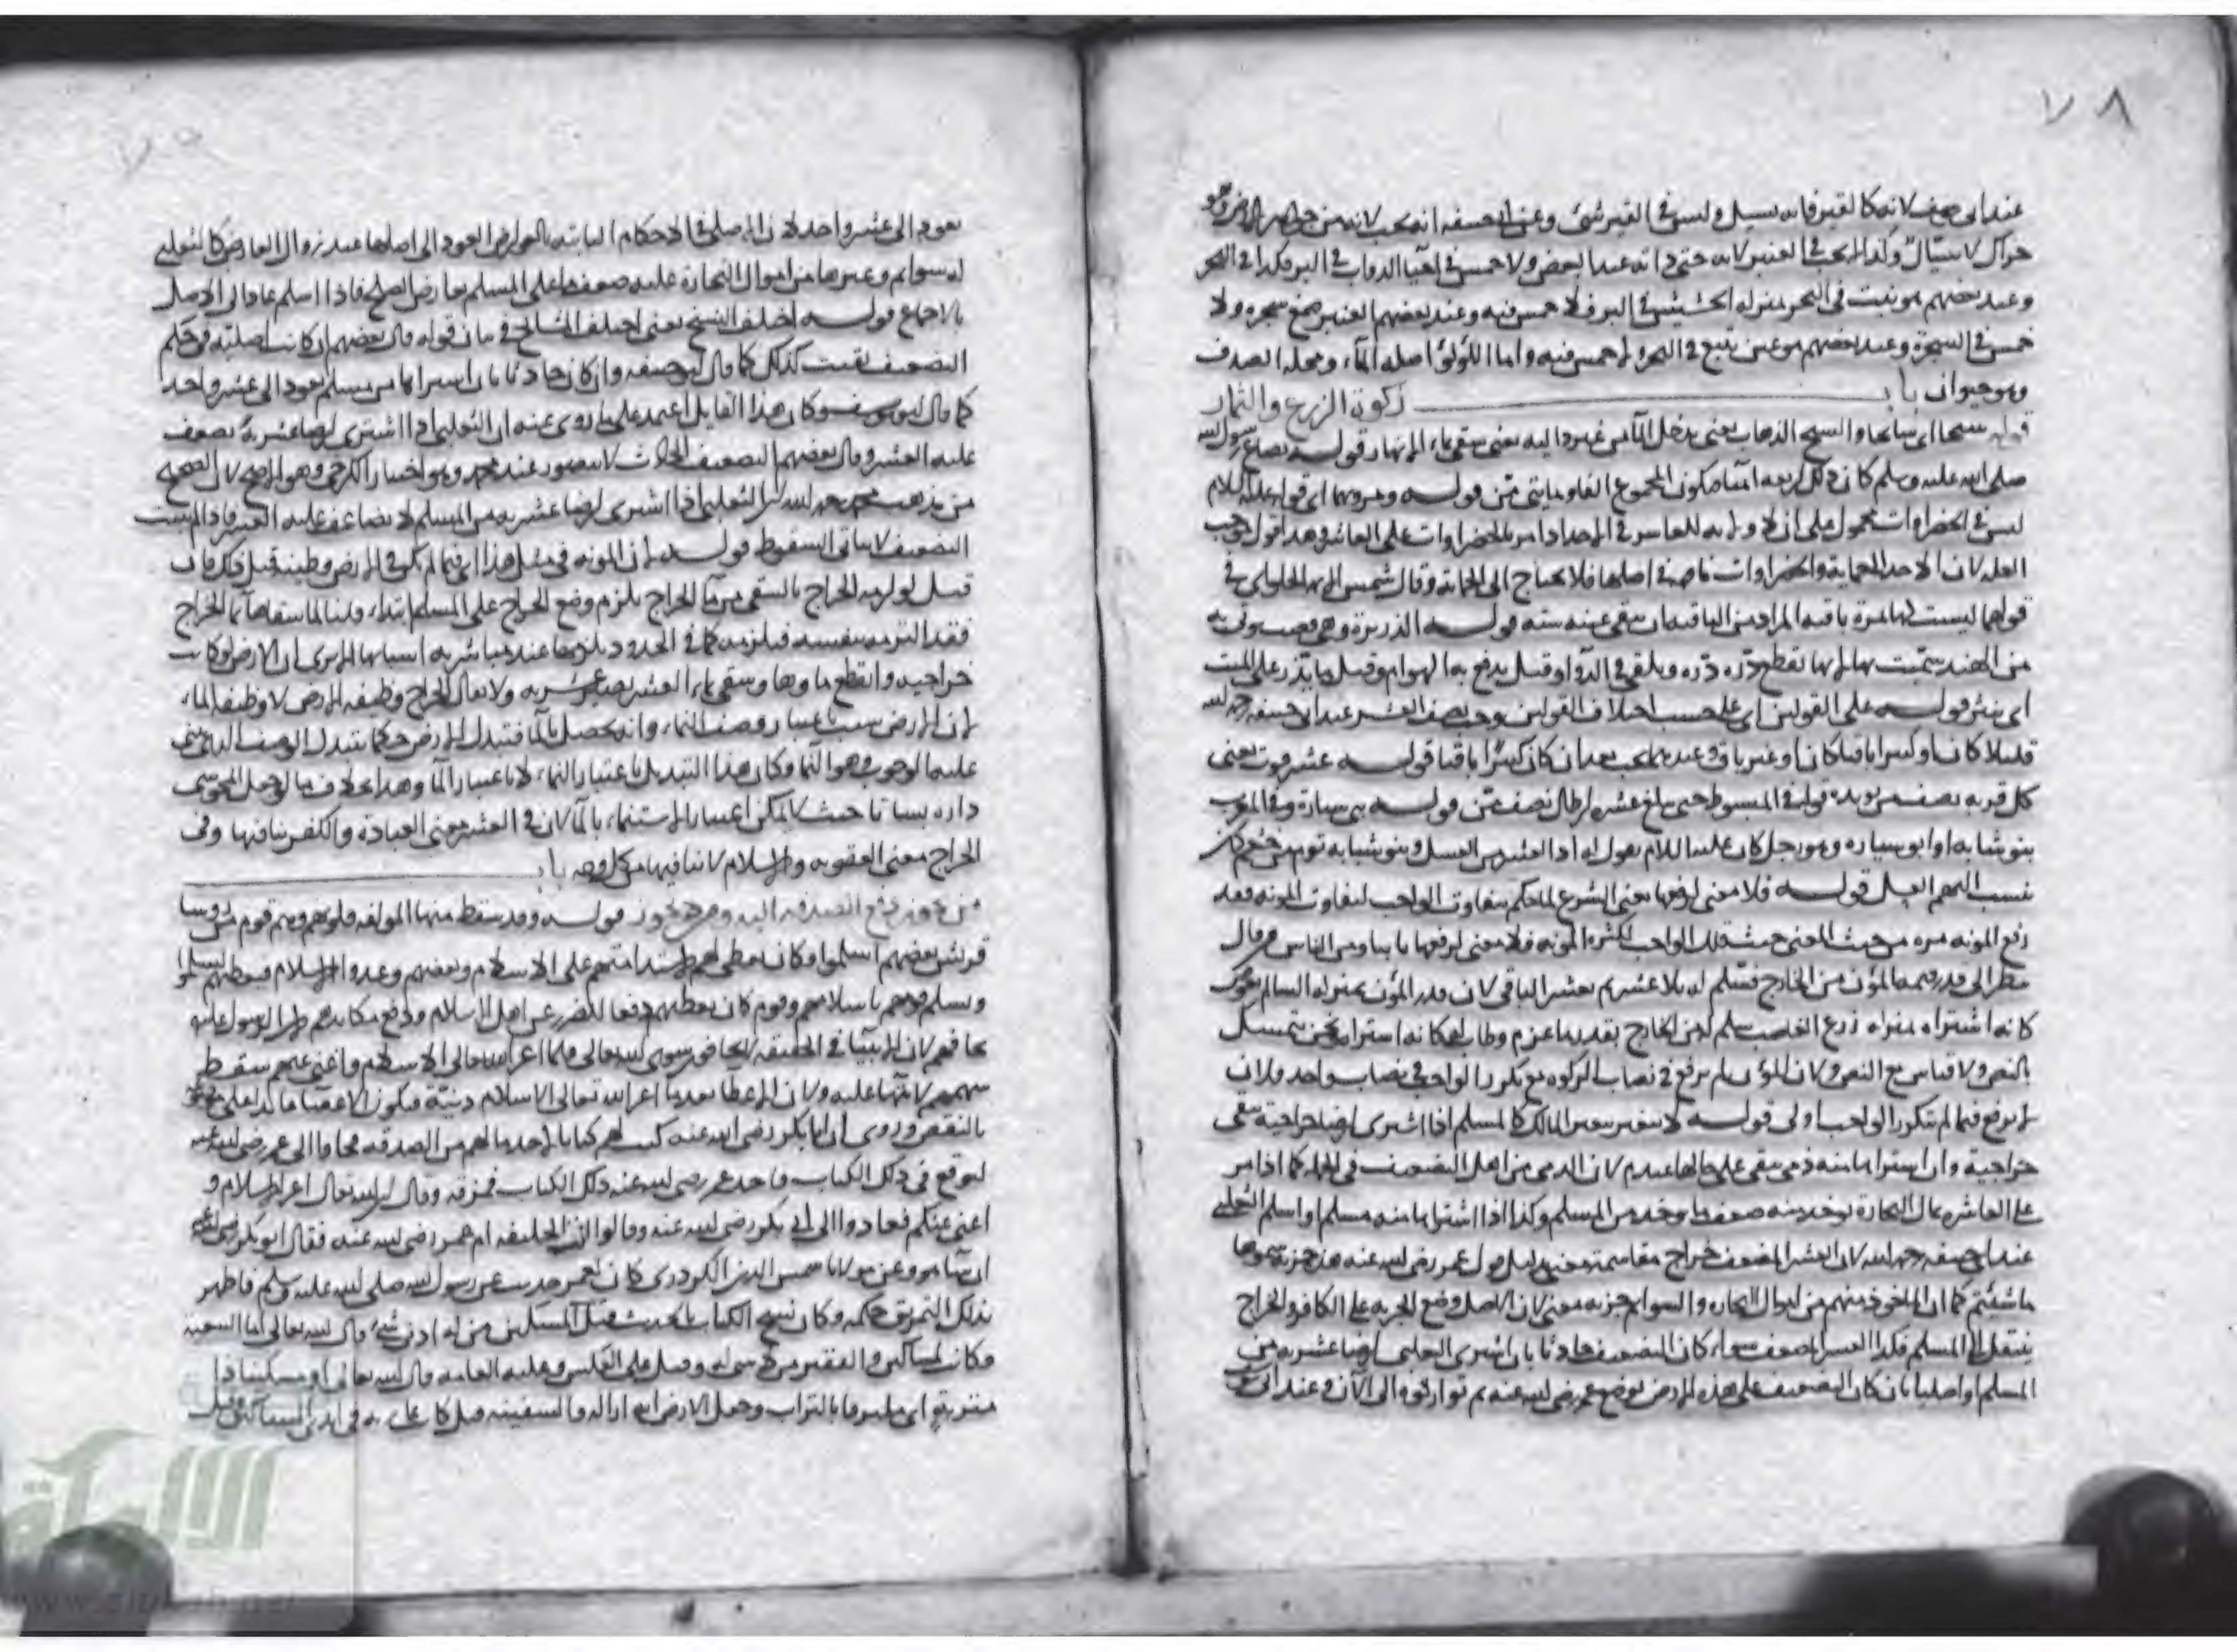 ٧٨
عند ابي يوسف لانه كالقير فانه يسيل وليس في القير شئ وعن ابي حنيفه انه يجب لانه من جواهر الارض وهو
وعند بعضهم هو نبت في البحر بمنزله الحشيش في البر فلا خمس فيه وعند بعضهم العنبر صمغ شجره ولا
خمس في الشجرة وعند بعضهم هو عين تنبع في البحر ولا خمس فيه واما اللؤلؤ اصله الماء ومحله الصدف
وهو حيوان باب زكوة الزرع والثمار
قوله سيحا اي سايحا والسيح الذهاب يعني يدخل الماء من غير داليه يعني سقي بماء الانهار قوله بصاع رسول الله
صلى الله عليه وسلم كان ذلك اربعه امنا فيكون المجموع الفا ومايتي من قوله ومرويهما اي قوله عليه السلام
ليس في الخضراوات محمول على ان لا ولايه للعاشر في الاخذ اذا مر بالخضراوات على العاشر وهذا قول بموجب
العله لان الاخذ للحمايه والخضراوات في اصلها فلا يحتاج الى الحمايه وقال شمس الايمه الحلواني في
قولهما ليست لها ثمرة باقيه المراد من الباقيه ان يبقى عينه سنه قوله الذريرة وهي قصب يوتى به
من الهند سميت بها لانها تقطع ذره ذره ويلقى في الدواء وقيل يدفع به الهوام وقيل ما يذر على الميت
اي ينثر قوله على القولين اي على حسب اختلاف القولين يوجب نصف العشر عند ابي حنيفه رحمه الله
قليلا كان او كثيرا باقيا كان او غير باق وعندهما يجب بعد ان كان كثيرا باقيا قوله عشر قرب يعني
كل قربه نصف من يويده قوله في المبسوط حتى يبلغ عشره ارطال نصف من قوله بني سيارة وفي المغرب
بنو شبابه او ابو سياره وهو رجل كان عليه السلام يقول له اد العشر من العسل وبنو شبابه قوم من خثعم كان
نسب اليهم العسل قوله فلا معنى لرفعها يعني الشرع لما حكم بتفاوت الواجب لتفاوت المونه فقد
رفع المونه مره من حيث المعنى حيث قلل الواجب لكثرة المونه فلا معنى لرفعها ثانيا ومن الناس من قال
ينظر الى قدر قيمه المؤن من الخارج فيسلم له بلا عشر ثم يعشر الباقي لان قدر المؤن بمنزله السالم بعوض
كانه اشتراه بمنزله زرع الغاصب سلم له من الخارج بقدر ما غرم وطاب له كانه اشتراه ونحن نتمسك
بالنص ولا قياس مع النص ولان المؤن لم يرفع في نصاب الزكوه مع تكرر الواجب في نصاب واحد فلان
لا يرفع فيما لم يتكرر الواجب اولى قوله لا يتغير بتغير المالك كالمسلم اذا اشترى ارضا خراجية يبقى
خراجية وان اشتراها منه ذمي يبقى على حالها عندهم لان الذمي من اهل التضعيف في الجمله كما اذا مر
على العاشر بمال التجارة يوخذ منه ضعف ما يوخذ من المسلم وكذا اذا اشتراها منه مسلم او اسلم التغلبي
عند ابي حنيفه رحمه الله لان العشر المضعف خراج مقاسمة معنى بدليل قول عمر رضي الله عنه هذه جزية سموها
ما شئتم كما ان الماخوذ منهم من اموال التجاره والسوايم جزيه معنى لان الاصل وضع الجزيه على الكافر والخراج
ينتقل الى المسلم فكذا العشر المضعف سواء كان التضعيف حادثا بان اشترى التغلبي ارضا عشريه من
المسلم او اصليا بان كان التضعيف على هذه الارض بوضع عمر رضي الله عنه ثم توارثوه الى الآن وعند ابي يوسف
٧٩
يعود الى عشر واحد لان الاصل في الاحكام الثابته بالعوارض العود الى اصلها عند زوال العارض كالتغلبي
له سوايم وغيرها من اموال التجاره عليه ضعف ما على المسلم بعارض الصلح فاذا اسلم عاد الى الاصل
بالاجماع قوله اختلف النسخ يعني اختلف المشايخ في بيان قوله قال بعضهم ان كانت اصليه في حكم
التضعيف بقيت كذلك كما قال ابو حنيفه وان كان حادثا بان اشتراها من مسلم يعود الى عشر واحد
كما قال ابو يوسف وكان هذا القايل اعتمد على ما روي عنه ان التغلبي اذا اشترى ارضا عشرية يضعف
عليه العشر وقال بعضهم التضعيف الحادث لا يتصور عند محمد وهو اختيار الكرخي وهو الاصح لان الصحيح
من مذهب محمد رحمه الله ان التغلبي اذا اشترى ارضا عشريه من المسلم لا يضاعف عليه العشر فاذا لم يثبت
التضعيف لا يتاتى السقوط قوله لان المونه في مثل هذا اي فيما لم يكن في الارض وظيفة قبل ذلك فان
قيل لو لزمه الخراج بالسقي من ماء الخراج يلزم وضع الخراج على المسلم ابتداء قلنا لما سقاها بماء الخراج
فقد التزمه بنفسه فيلزمه كما في الحدود يلزمها عند مباشرته اسبابها الا يرى ان الارض لو كانت
خراجيه وانقطع ماوها وسقي بماء العشر يصير عشريه ولا يقال الخراج وظيفه الارض لا وظيفه الماء
لان الارض سبب باعتبار وصف النماء وانه يحصل بالماء فتبدل الارض حكما بتبدل الوصف الذي بني
عليه الوجوب وهو النماء وكان هذا التبديل باعتبار النماء لا باعتبار الماء وهذا بخلاف ما لو جعل المجوسي
داره بستانا حيث لا يمكن اعتبار الاستنماء بالماء لان في العشر معنى العبادة والكفر ينافيها وفي
الخراج معنى العقوبه والاسلام لا ينافيها من كل وجه باب
من يجوز دفع الصدقه اليه ومن لا يجوز قوله وقد سقط منها المولفه قلوبهم وهم قوم من روسا
قريش بعضهم اسلموا وكان يعطي لهم لاستدامتهم على الاسلام وبعضهم وعدوا الاسلام فيعطيهم ليسلموا
ويسلم قومهم باسلامهم وقوم كان يعطيهم دفعا للضرر عن اهل الاسلام ودفع مكايدهم لا ان الرسول عليه
يخافهم لان الانبيا في الحقيقه لا يخافون سوى الله تعالى فلما اعز الله تعالى الاسلام واغنى عنهم سقط
بالنقض وروى ان ابا بكر رضي الله عنه كتب لهم كتابا لاخذ ما لهم من الصدقه فجاوا الى عمر رضي الله عنه
ليوقع في ذلك الكتاب فاخذ عمر رضي الله عنه ذلك الكتاب فمزقه وقال ان الله تعالى اعز الاسلام و
اغنى عنكم فعادوا الى ابي بكر رضي الله عنه وقالوا انت الخليفه ام عمر رضي الله عنه فقال ابو بكر رضي الله عنه
ان شا هو وعن مولانا شمس الدين الكردري كان لعمر حديث عن رسول الله صلى الله عليه وسلم فاظهر
بذلك التمزيق حكمه وكان نسخ الكتاب بالحديث قوله المسكين من له ادنى شئ قال الله تعالى اما السفينه
فكانت لمساكين والفقير من لا شي له وقيل على العكس وعليه العامه قال الله تعالى او مسكينا ذا